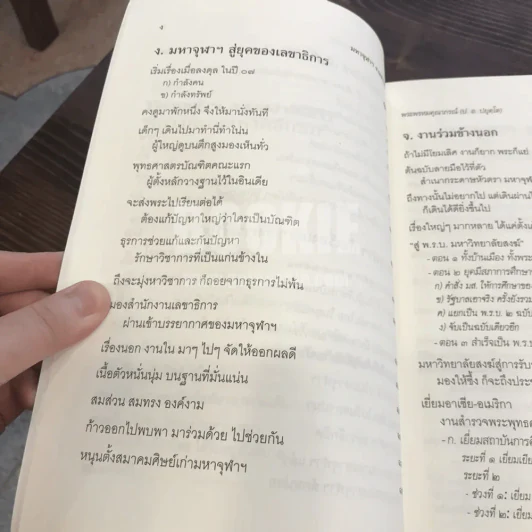 ๔
ง. มหาจุฬาฯ สู่ยุคของเลขาธิการ
เริ่มเรื่องเมื่อลงตุล ในปี ๐๗
ก) กำลังคน
ข) กำลังทรัพย์
คงดูมาพักหนึ่ง จึงให้มานั่งทันที
เด็กๆ เดินไปมาทำนี่ทำโน่น
ผู้ใหญ่ดูบนตึกสูงมองเห็นทั่ว
พุทธศาสตรบัณฑิตคณะแรก
ผู้ตั้งหลักวางฐานไว้ในอินเดีย
จะส่งพระไปเรียนต่อได้
ต้องแก้ปัญหาใหญ่ว่าใครเป็นบัณฑิต
ธุรการช่วยแก้และกันปัญหา
รักษาวิชาการที่เป็นแก่นข้างใน
ถึงจะมุ่งหาวิชาการ ก็ถอยจากธุรการไม่พ้น
มองสำนักงานเลขาธิการ
ผ่านเข้าบรรยากาศของมหาจุฬาฯ
เรื่องนอก งานใน มาๆ ไปๆ จัดให้ออกผลดี
เนื้อตัวหนั่นนุ่ม บนฐานที่มั่นแน่น
สมส่วน สมทรง องค์งาม
ก้าวออกไปพบพา มาร่วมด้วย ไปช่วยกัน
หนุนตั้งสมาคมศิษย์เก่ามหาจุฬาฯ
พระพรหมคุณาภรณ์ (ป. อ. ปยุตฺโต)
จ. งานร่วมข้างนอก
ถ้าไม่มีโยมเลิศ งานก็ยาก พระก็แย่
ต้นฉบับลายมือไว้ที่ตัว
สำเนากระดาษหัวตรา มหาจุฬ
ถึงทางนั้นไม่อยากไป แต่เดินผ่าน
ก็เดินให้ดียิ่งขึ้นไป
เรื่องใหญ่ๆ มากหลาย ได้แต่ตั้ง
"สู่ พ.ร.บ. มหาวิทยาลัยสงฆ์"
- ตอน ๑ ทั้งบ้านเมือง ทั้งพระ
- ตอน ๒ ยุคมีสภาการศึกษา
ก) คำสั่ง มส. ให้การศึกษาของ
ข) รัฐบาลเอาจริง ครั้งยังรวม
ค) แยกเป็น พ.ร.บ. ๒ ฉบับ
ง) จับเป็นฉบับเดียวอีก
- ตอน ๓ สำเร็จเป็น พ.ร.บ.
มหาวิทยาลัยสงฆ์สู่การรับ
มองให้ซึ้ง ก็จะถึงประ
เยี่ยมอาเซีย-อเมริกา
งานสำรวจพระพุทธศ
- ก. เยี่ยมสถาบันการศึ
ระยะที่ ๑ เยี่ยมเยีย
ระยะที่ ๒
- ช่วงที่ ๑: เยี่ยม
- ช่วงที่ ๒: เยี่ยม